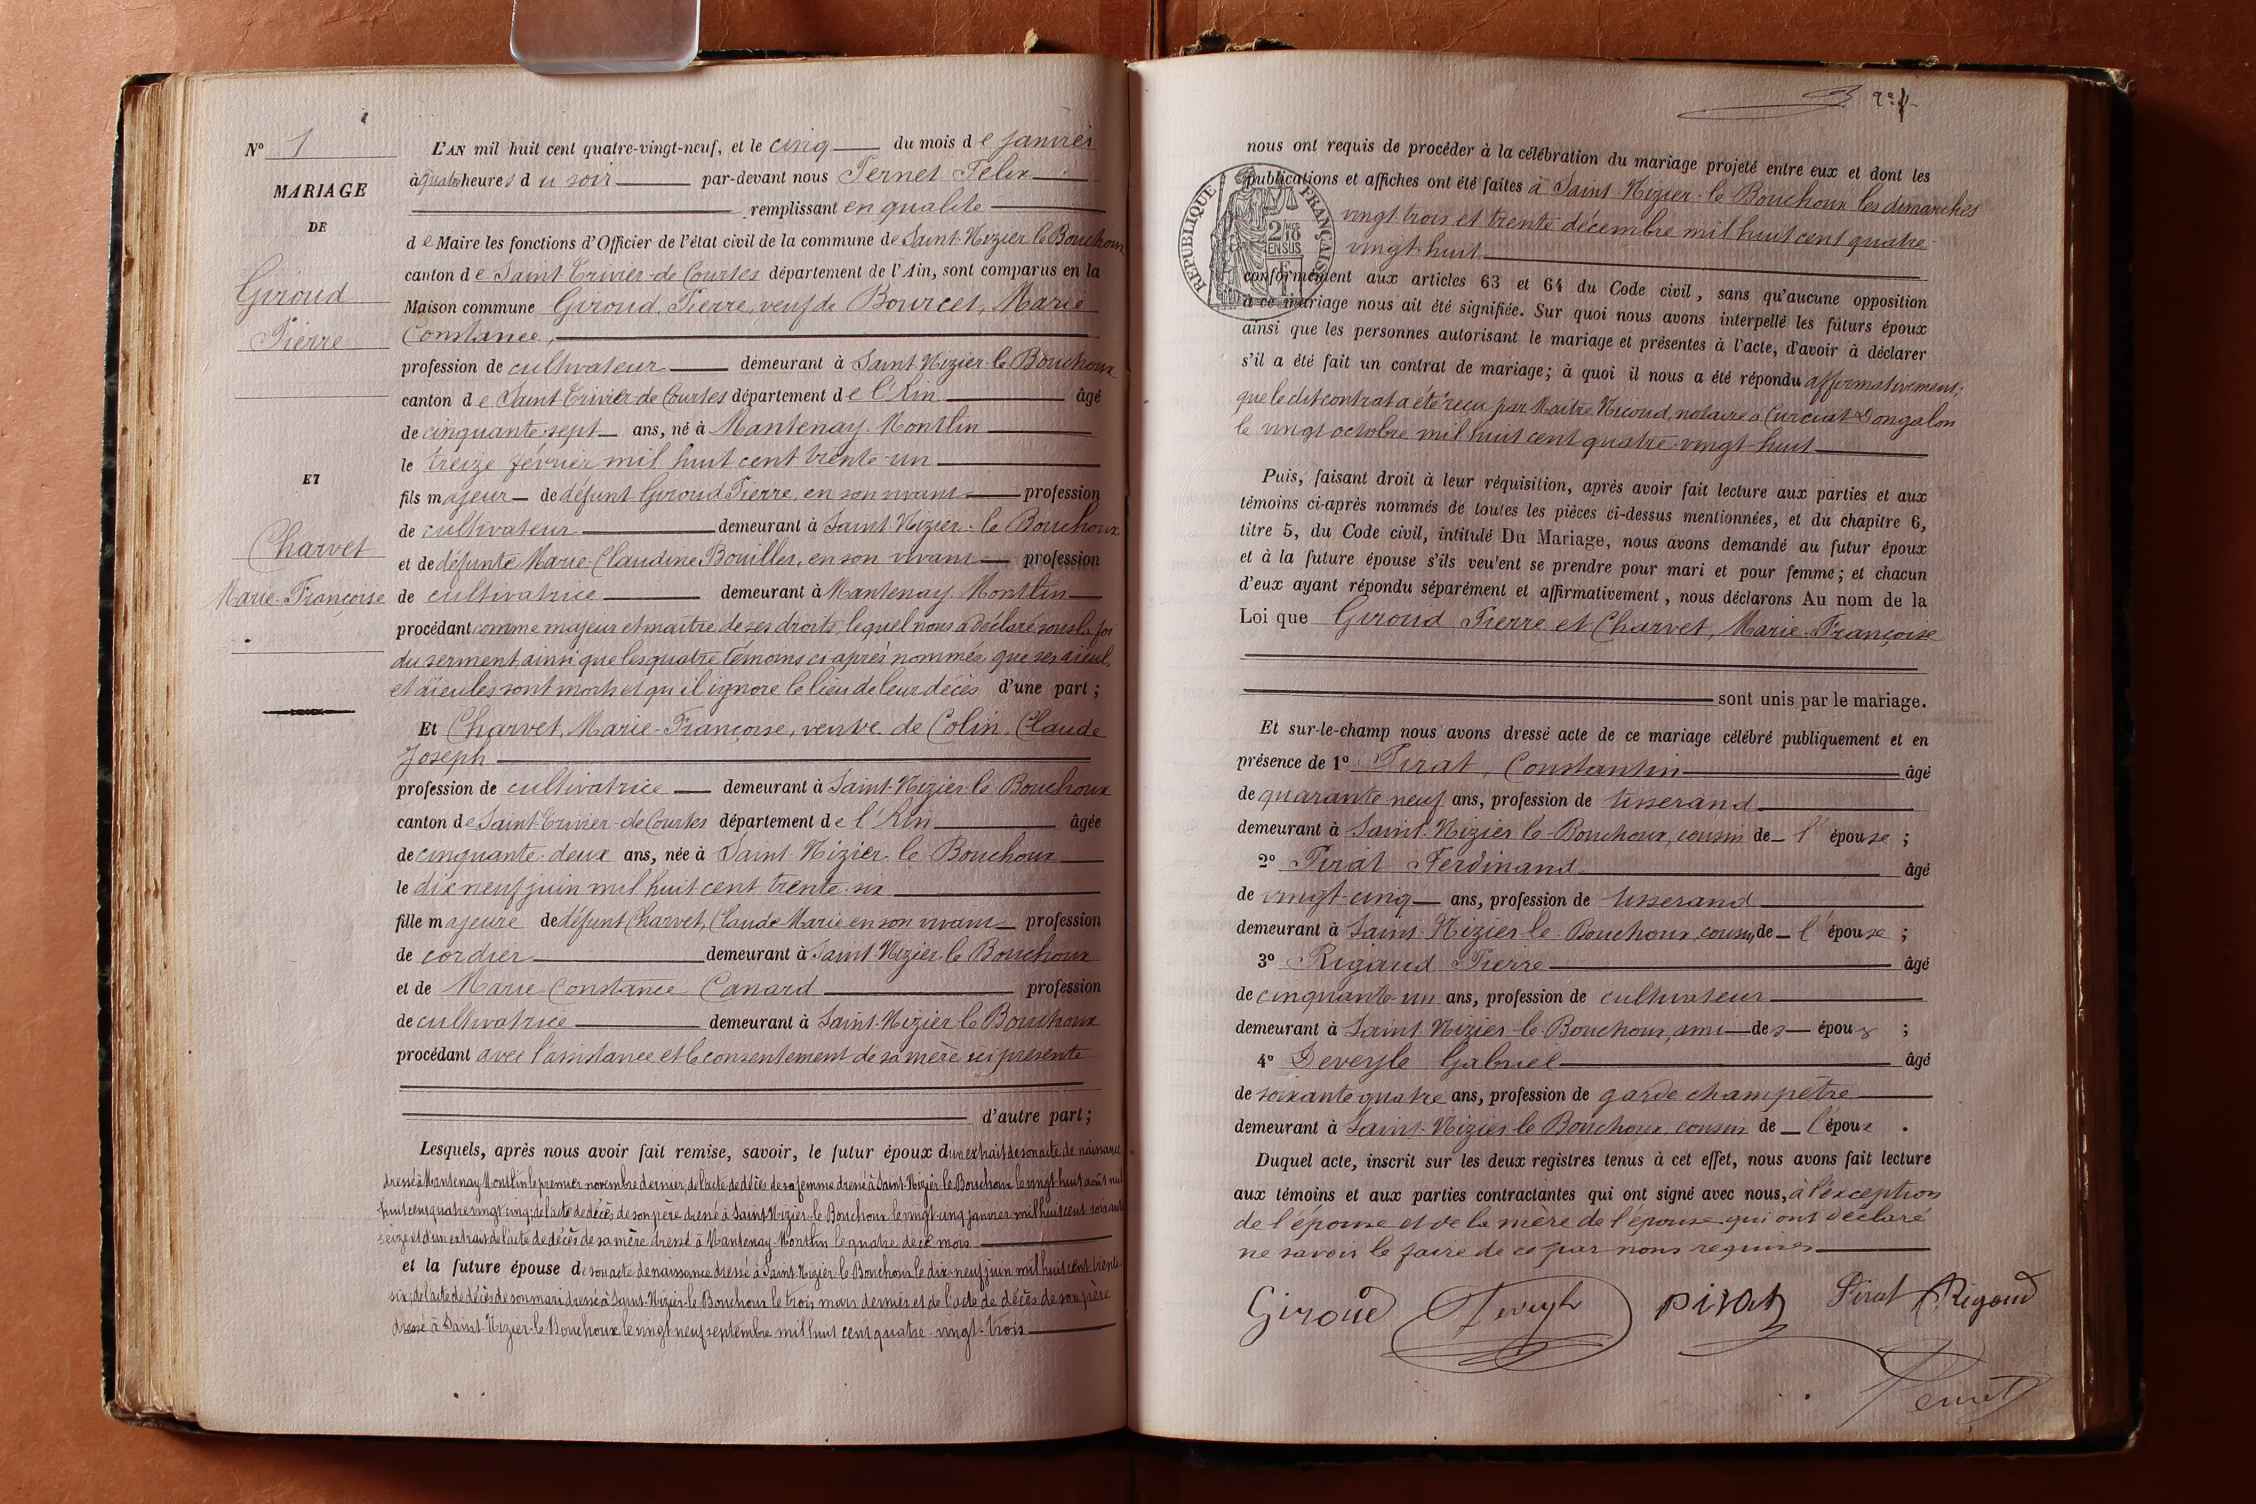 N° 1
MARIAGE
DE
Giroud
Pierre
ET
Charvet
Marie-Françoise
L'AN mil huit cent quatre-vingt-neuf, et le cinq du mois de janvier
à quatre heures du soir par-devant nous Pernet Félix
remplissant en qualité
de Maire les fonctions d'Officier de l'état civil de la commune de Saint-Nizier-le-Bouchoux
canton de Saint-Trivier-de-Courtes département de l'Ain, sont comparus en la
Maison commune Giroud, Pierre, veuf de Bourcet, Marie
Constance,
profession de cultivateur demeurant à Saint-Nizier-le-Bouchoux
canton de Saint-Trivier-de-Courtes département de l'Ain âgé
de cinquante-sept ans, né à Mantenay-Montlin
le treize février mil huit cent trente-un
fils majeur de défunt Giroud Pierre, en son vivant profession
de cultivateur demeurant à Saint-Nizier-le-Bouchoux
et de défunte Marie-Claudine Bouiller, en son vivant profession
de cultivatrice demeurant à Mantenay-Montlin
procédant comme majeur et maître de ses droits, lequel nous a déclaré sous la foi
du serment ainsi que les quatre témoins ci-après nommés, que ses aïeuls
et aïeules sont morts et qu'il ignore le lieu de leur décès d'une part ;
Et Charvet, Marie-Françoise, veuve de Colin, Claude
Joseph
profession de cultivatrice demeurant à Saint-Nizier-le-Bouchoux
canton de Saint-Trivier-de-Courtes département de l'Ain âgée
de cinquante-deux ans, née à Saint-Nizier-le-Bouchoux
le dix-neuf juin mil huit cent trente-six
fille majeure de défunt Charvet, Claude Marie en son vivant profession
de cordier demeurant à Saint-Nizier-le-Bouchoux
et de Marie-Constance Canard profession
de cultivatrice demeurant à Saint-Nizier-le-Bouchoux
procédant avec l'assistance et le consentement de sa mère ici présente
d'autre part ;
Lesquels, après nous avoir fait remise, savoir, le futur époux d'un extrait de son acte de naissance
dressé à Mantenay-Montlin le premier novembre dernier, de l'acte de décès de sa femme dressé à Saint-Nizier-le-Bouchoux le vingt-huit août mil
huit cent quatre-vingt-cinq; de l'acte de décès de son père dressé à Saint-Nizier-le-Bouchoux le vingt-cinq janvier mil huit cent soixante
seize et d'un extrait de l'acte de décès de sa mère dressé à Mantenay-Montlin le quatre de ce mois
et la future épouse de son acte de naissance dressé à Saint-Nizier-le-Bouchoux le dix-neuf juin mil huit cent trente-
six; de l'acte de décès de son mari dressé à Saint-Nizier-le-Bouchoux le trois mars dernier et de l'acte de décès de son père
dressé à Saint-Nizier-le-Bouchoux le vingt-neuf septembre mil huit cent quatre-vingt-trois
nous ont requis de procéder à la célébration du mariage projeté entre eux et dont les
publications et affiches ont été faites à Saint-Nizier-le-Bouchoux les dimanches
vingt-trois et trente décembre mil huit cent quatre-
vingt-huit
RÉPUBLIQUE FRANÇAISE
conformément aux articles 63 et 64 du Code civil, sans qu'aucune opposition
à ce mariage nous ait été signifiée. Sur quoi nous avons interpellé les futurs époux
ainsi que les personnes autorisant le mariage et présentes à l'acte, d'avoir à déclarer
s'il a été fait un contrat de mariage ; à quoi il nous a été répondu affirmativement;
que le dit contrat a été reçu par Maître Nicoud, notaire à Curciat-Dongalon
le vingt octobre mil huit cent quatre-vingt-huit
Puis, faisant droit à leur réquisition, après avoir fait lecture aux parties et aux
témoins ci-après nommés de toutes les pièces ci-dessus mentionnées, et du chapitre 6,
titre 5, du Code civil, intitulé Du Mariage, nous avons demandé au futur époux
et à la future épouse s'ils veulent se prendre pour mari et pour femme ; et chacun
d'eux ayant répondu séparément et affirmativement, nous déclarons Au nom de la
Loi que Giroud Pierre et Charvet, Marie-Françoise
sont unis par le mariage.
Et sur-le-champ nous avons dressé acte de ce mariage célébré publiquement et en
présence de 1° Pirat, Constantin âgé
de quarante-neuf ans, profession de tisserand
demeurant à Saint-Nizier-le-Bouchoux, cousin de l'épouse ;
2° Pirat Ferdinand âgé
de vingt-cinq ans, profession de tisserand
demeurant à Saint-Nizier-le-Bouchoux, cousin de l'épouse ;
3° Rigaud Pierre âgé
de cinquante-un ans, profession de cultivateur
demeurant à Saint-Nizier-le-Bouchoux, ami des époux ;
4° Deveyle Gabriel âgé
de soixante quatre ans, profession de garde champêtre
demeurant à Saint-Nizier-le-Bouchoux, cousin de l'époux.
Duquel acte, inscrit sur les deux registres tenus à cet effet, nous avons fait lecture
aux témoins et aux parties contractantes qui ont signé avec nous, à l'exception
de l'épouse et de la mère de l'épouse qui ont déclaré
ne savoir le faire de ce par nous requises
Giroud Deveyle pirat Pirat P. Rigaud
Pernet